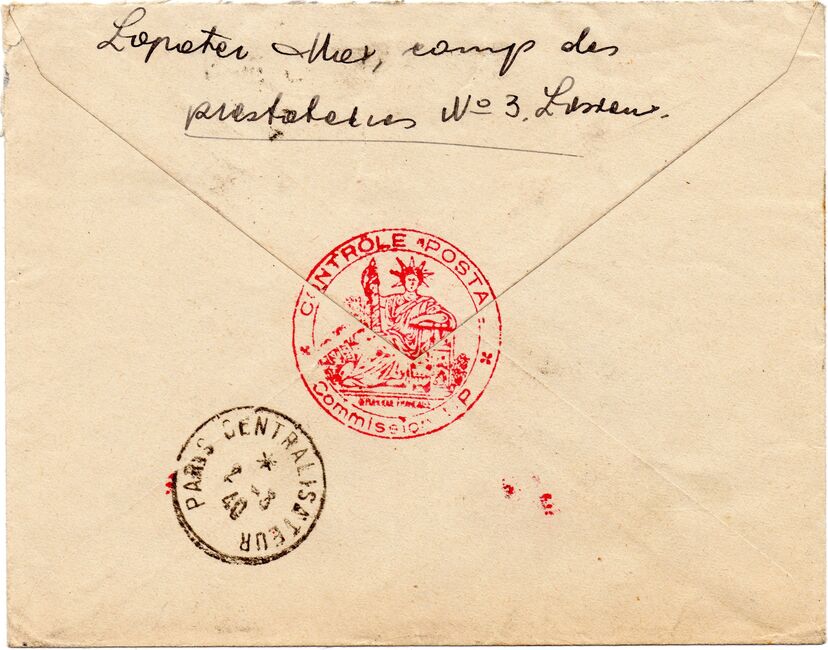 Lopater Max, camp des
prestataires No 3, Lisieux.
CONTRÔLE POSTAL
Commission
PARIS CENTRALISATEUR
*
-3
40